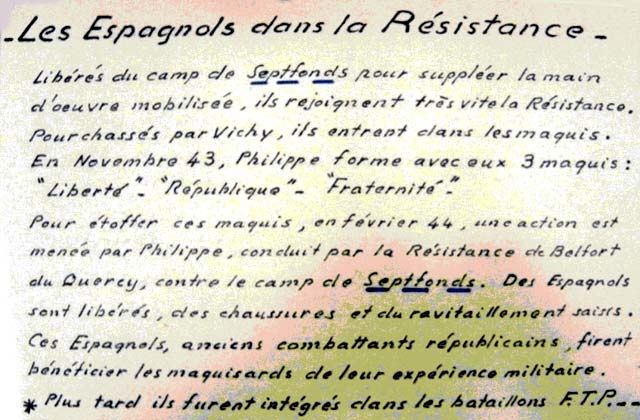 - Les Espagnols dans la Résistance -
Libérés du camp de Septfonds pour suppléer la main
d'oeuvre mobilisée, ils rejoignent très vite la Résistance.
Pourchassés par Vichy, ils entrent dans les maquis.
En Novembre 43, Philippe forme avec eux 3 maquis :
"Liberté" - "République" - "Fraternité" -
Pour étoffer ces maquis, en février 44, une action est
menée par Philippe, conduit par la Résistance de Belfort
du Quercy, contre le camp de Septfonds. Des Espagnols
sont libérés, des chaussures et du ravitaillement saisis.
Ces Espagnols, anciens combattants républicains, firent
bénéficier les maquisards de leur expérience militaire.
* Plus tard ils furent intégrés dans les bataillons F.T.P. -